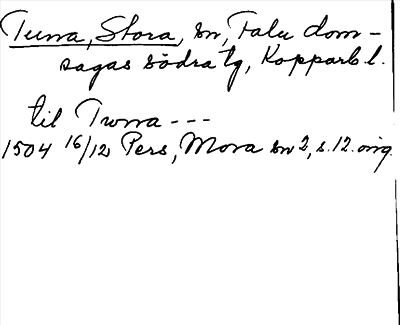 Tuna, Stora, sn, Falu dom-
sagas södra tg, Kopparb l.
til Twna ---
1504 16/12 Pers, Mora sn 2, s. 12. orig.